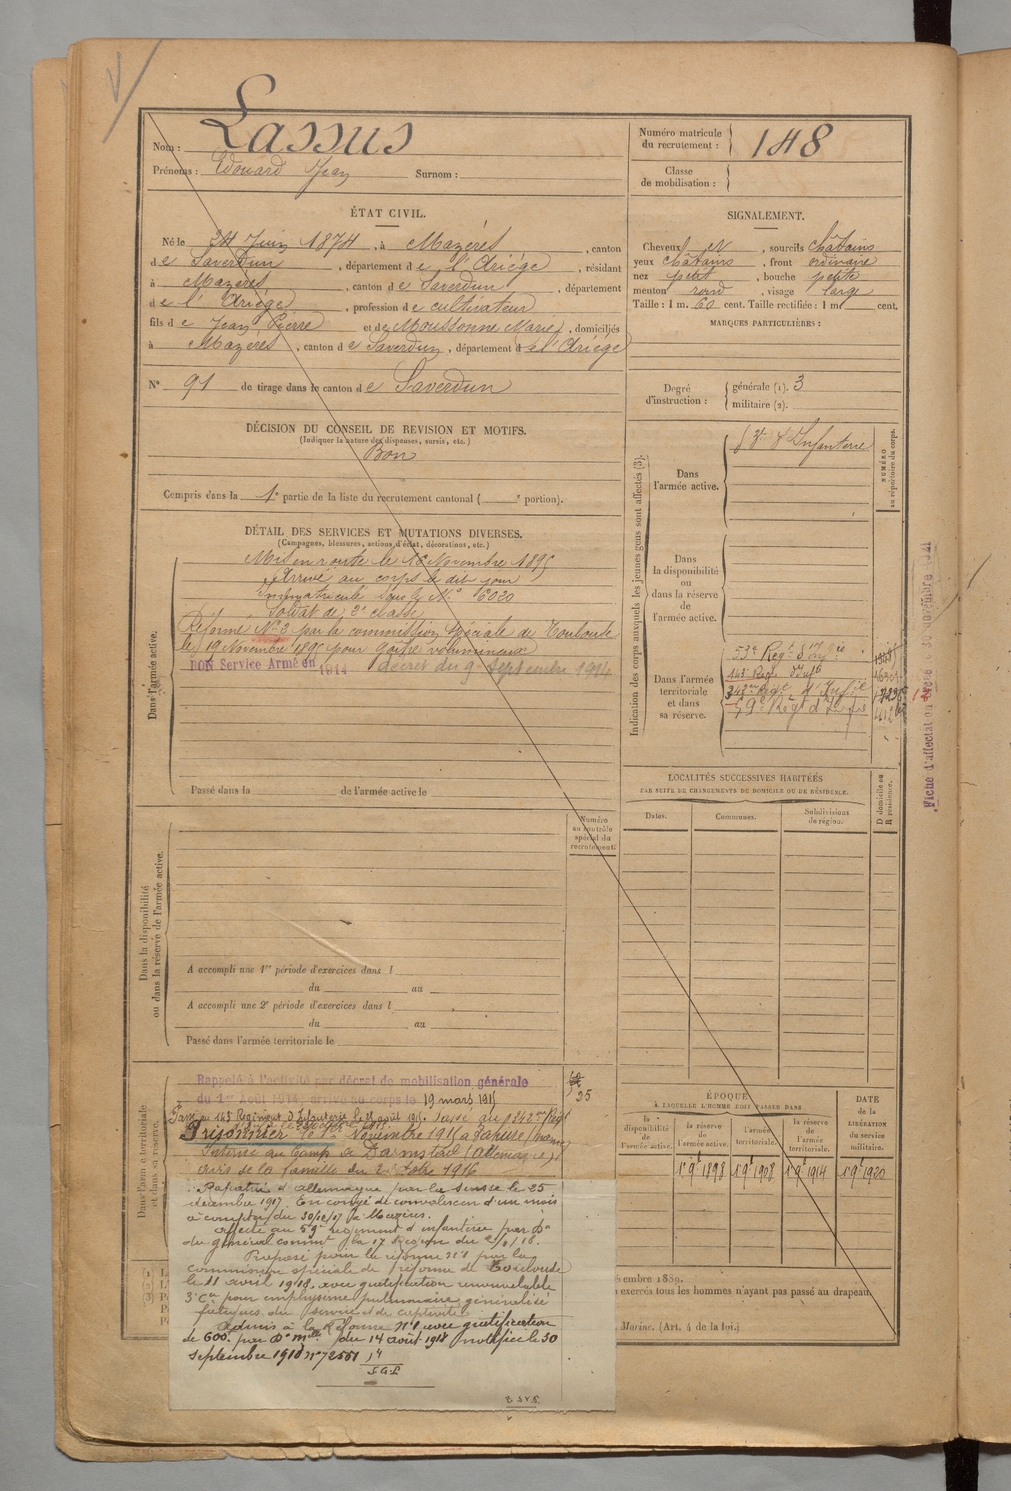 Nom : Lassus
Prénoms : Edouard Jean Surnom :
Numéro matricule du recrutement : 148
Classe de mobilisation :
ÉTAT CIVIL.
Né le 24 Juin 1874, à Mazères, canton
de Saverdun, département de l'Ariège, résidant
à Mazères, canton de Saverdun, département
de l'Ariège, profession de cultivateur
fils de Jean Pierre et de Moussonne Marie, domiciliés
à Mazères, canton de Saverdun, département de l'Ariège
N° 91 de tirage dans le canton de Saverdun
SIGNALEMENT.
Cheveux et, sourcils châtains
yeux châtains, front ordinaire
nez petit, bouche petite
menton rond, visage large
Taille : 1 m. 60 cent. Taille rectifiée : 1 m cent.
MARQUES PARTICULIÈRES :
Degré d'instruction : générale (1). 3
militaire (2).
DÉCISION DU CONSEIL DE REVISION ET MOTIFS.
(Indiquer la nature des dispenses, sursis, etc.)
Bon
Compris dans la 1e partie de la liste du recrutement cantonal ( e portion).
DÉTAIL DES SERVICES ET MUTATIONS DIVERSES.
(Campagnes, blessures, actions d'éclat, décorations, etc.)
Dans l'armée active.
Mis en route le 16 Novembre 1895
Arrivé au corps le dit jour
Immatriculé sous le N° 6020
Soldat de 2e classe
Réformé N° 2 par la commission spéciale de Toulouse
le 19 Novembre 1895 pour goître volumineux
BON Service Armé en 1914 décret du 9 Septembre 1914
Passé dans la de l'armée active le
Indication des corps auxquels les jeunes gens sont affectés (3).
NUMÉRO au répertoire du corps.
Dans l'armée active.
d'Infanterie
Dans la disponibilité ou dans la réserve de l'armée active.
Dans l'armée territoriale et dans sa réserve.
53e Regt d'Infie
143e Reg. d'Infie
342me Regt d'Infie
59e Regt d'Infie
Fiche d'affectation
LOCALITÉS SUCCESSIVES HABITÉES
PAR SUITE DE CHANGEMENTS DE DOMICILE OU DE RÉSIDENCE.
Dates.
Communes.
Subdivisions de région.
D domicile ou R résidence.
Dans la disponibilité ou dans la réserve de l'armée active.
Numéro au contrôle spécial du recrutement.
A accompli une 1re période d'exercices dans l
du au
A accompli une 2e période d'exercices dans l
du au
Passé dans l'armée territoriale le
Dans l'armée territoriale et dans sa réserve.
Rappelé à l'activité par décret de mobilisation générale
du 1er Août 1914, arrivé au corps le 19 mars 1915
25
Passé au 143e Régiment d'Infanterie le 21 août 1915. Passé au 342me Regt
Prisonnier le 1er Novembre 1915 à
Interné au Camp de Darmstadt (Allemagne)
avis de la famille du 2 1916
Rapatrié d'Allemagne par la Suisse le 25
décembre 1917. En congé de convalescence d'un mois
à compter du 30/12/17 à Mazères.
Affecté au 59e régiment d'infanterie par Don
du général commt la 17e Région du
Proposé pour la réforme n°1 par la
commission spéciale de réforme de Toulouse
le 11 avril 1918, avec gratification renouvelable
pour emphysème pulmonaire généralisé
fatigues du service et de captivité.
Admis à la Réforme n°1 avec gratification
de 600f. par Don mlle du 14 août 1918 notifiée le 30
septembre 1918 n° 72551
ÉPOQUE
À LAQUELLE L'HOMME DOIT PASSER DANS
la disponibilité de l'armée active.
la réserve de l'armée active.
l'armée territoriale.
la réserve de l'armée territoriale.
DATE de la LIBÉRATION du service militaire.
1er 9bre 1898
1er 9bre 1908
1er 9bre 1914
1er 9bre 1920
embre 1889.
exercés tous les hommes n'ayant pas passé au drapeau.
Marine. (Art. 4 de la loi.)